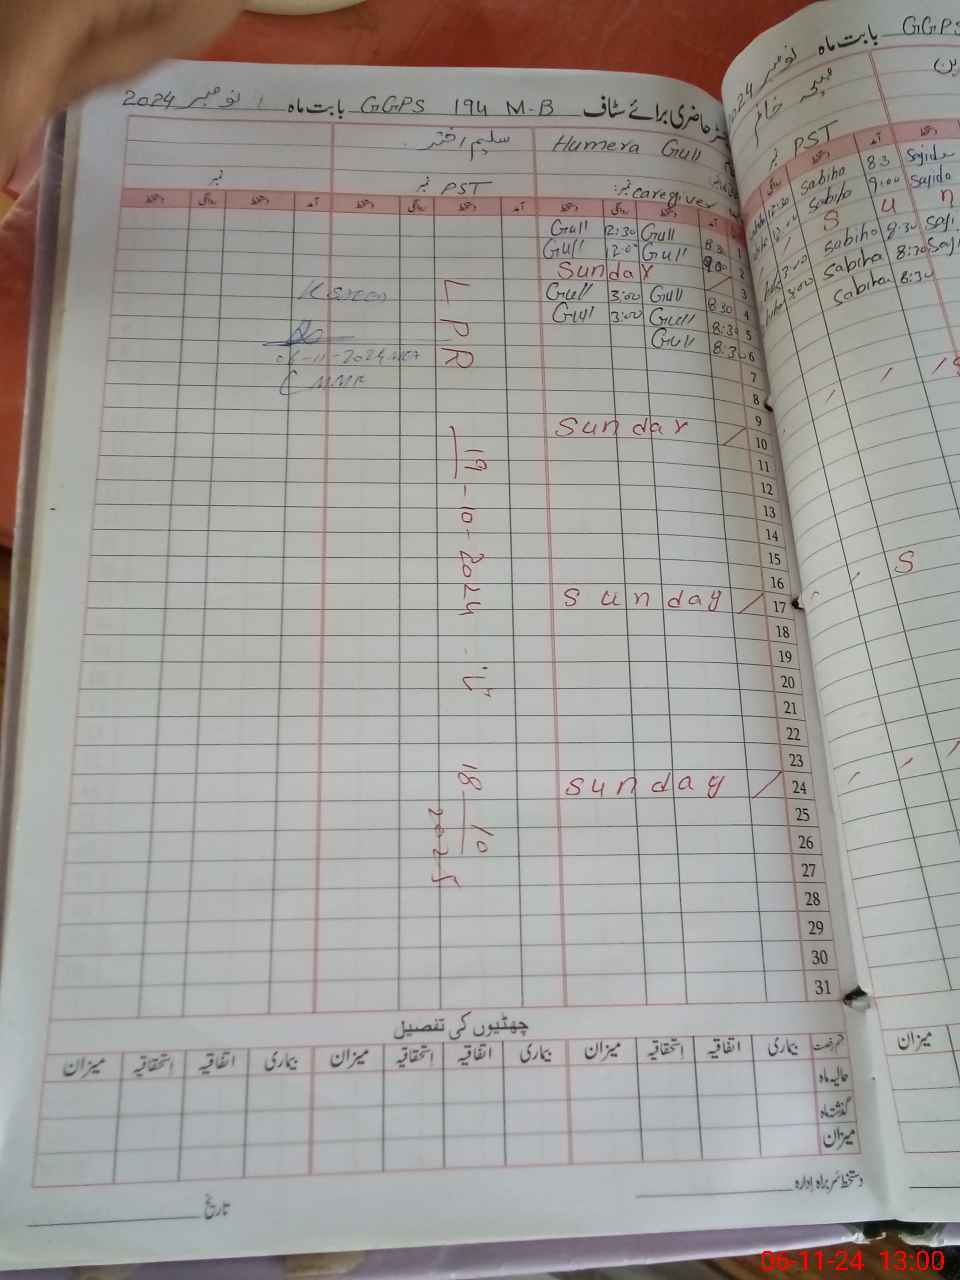 رجسٹر حاضری برائے سٹاف GGPS 194 M-B بابت ماہ نومبر 2024
Humera Gull
سلیم اختر
caregiver نمبر:
PST نمبر
نمبر
آمد دستخط روانگی دستخط آمد دستخط روانگی دستخط آمد دستخط روانگی دستخط
1 8:30 Gull 12:30 Gull
2 9:00 Gull 12:00 Gull
3 Sunday
4 8:30 Gull 3:00 Gull
5 8:30 Gull 3:00 Gull
6 8:30 Gull
7
8
9
10 Sunday
11
12
13
14
15
16
17 Sunday
18
19
20
21
22
23
24 Sunday
25
26
27
28
29
30
31
LPR
19-10-2024
18-10
2025
06-11-2024
چھٹیوں کی تفصیل
قسم رخصت بیماری اتفاقیہ استحقاقیہ میزان بیماری اتفاقیہ استحقاقیہ میزان بیماری اتفاقیہ استحقاقیہ میزان
حالیہ ماہ
گذشتہ ماہ
میزان
دستخط سربراہ ادارہ
تاریخ
GGPS بابت ماہ نومبر 2024
PST نمبر
دستخط آمد
Sabiha 8:3 Sajida
Sabiha 9:00 Sajida
S u n
Sabiha 8:30 Saji
Sabiha 8:30 Saji
Sabiha 8:30
S
میزان
06-11-24 13:00